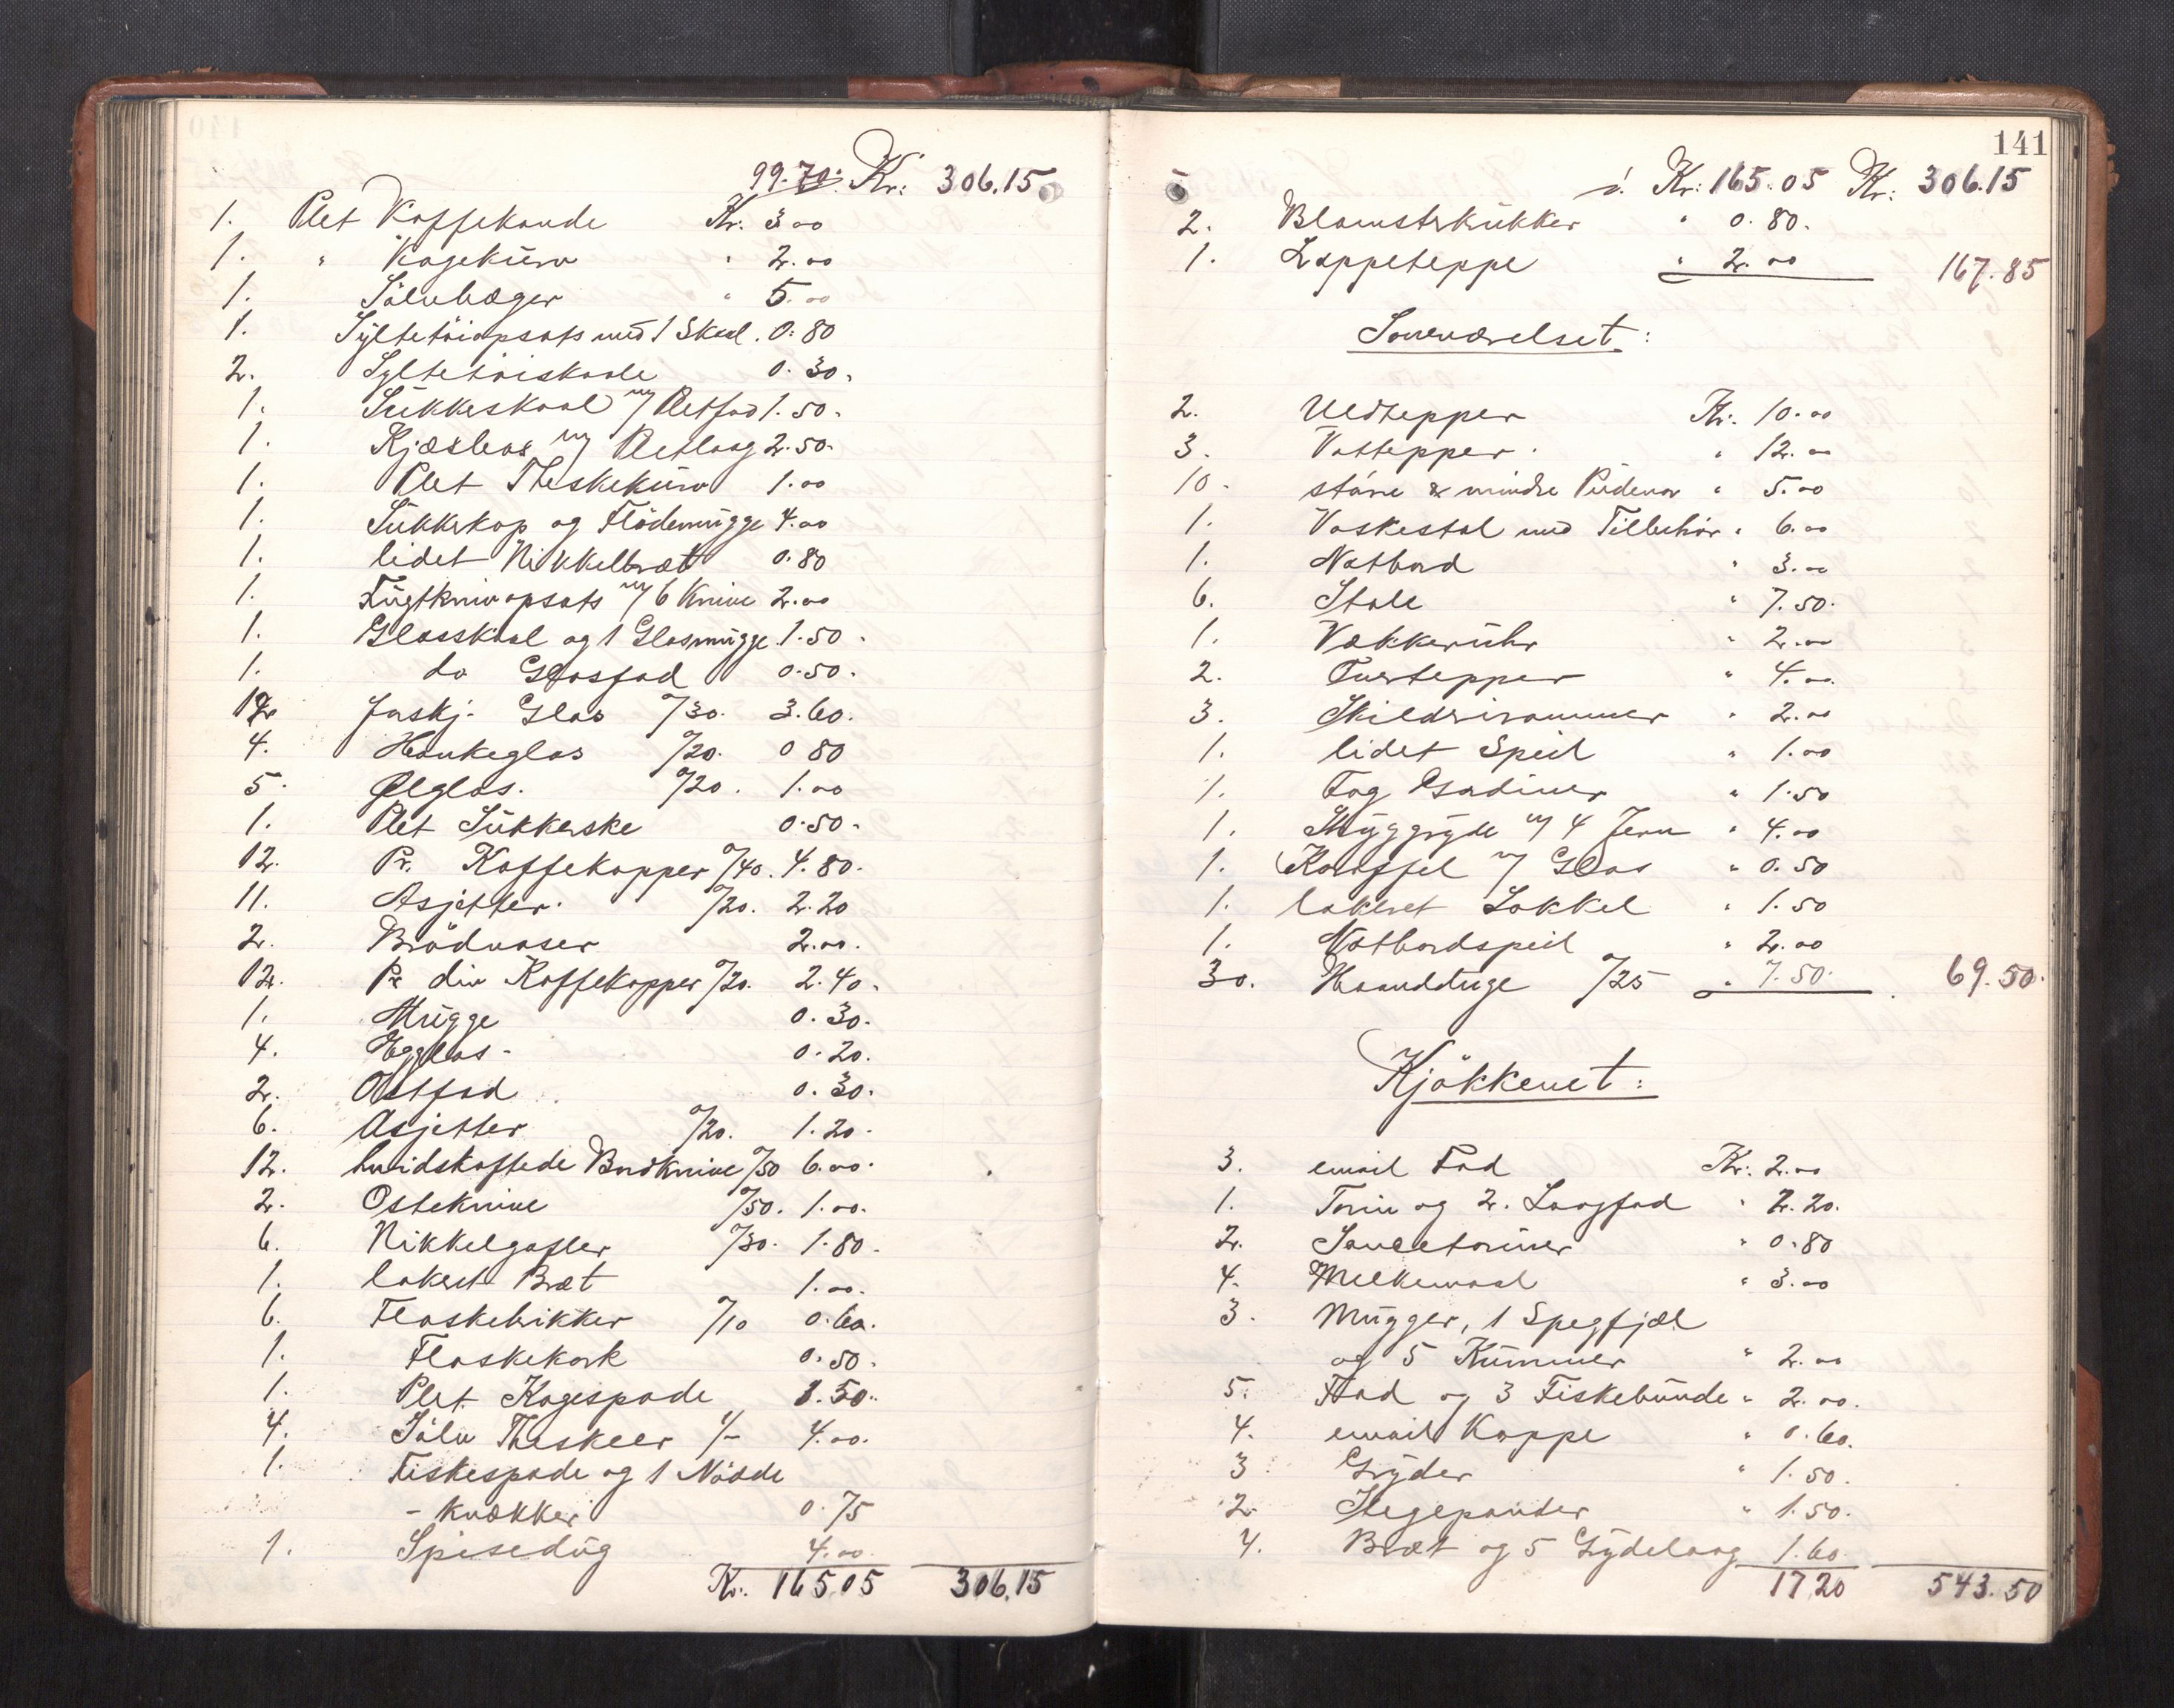 99.70. Kr: 306.15
1. Plet Kaffekande Kr. 3.00
1. " Kagekurv " 2.00
1. Sölvbæger " 5.00
1. Syltetöiopsats med 1 Skaal. 0.80
2. Syltetöiskaale 0.30.
1. Sukkeskaal m/ Pletfad 1.50.
1. Kjæxbox m/ Pletlaag 2.50.
1. Plet Theskekurv 1.00
1. Sukkerkop og Flödemugge 4.00
1. lidet Nikkelbræt 0.80
1. Frugtknivopsats m/ 6 Knive 2.00
1. Glasskaal og 1 Glasmugge 1.50.
1. do Glasfad 0.50.
12 Glas /30. 3.60.
4. Hankeglas /20. 0 80
5. Ølglas. /20. 1.00
1. Plet Sukkerske 0.50.
12. Pr. Kaffekopper /40. 4.80.
11. Asjetter. /20. 2.20
2. Brödvaser 2.00.
12. Pr div Kaffekopper /20. 2.40.
1. Mugge 0.30.
4. Egglas. 0.20.
2. Ostfad 0.30.
6. Asjetter /20. 1.20.
12. hvidskaftede Bordknive /50 6.00.
2. Osteknive /50. 1.00.
6. Nikkelgafler /30. 1.80.
1. lakert Bræt 1.00.
6. Flaskebrikker /10 0.60.
1. Flaskekork 0.50.
1. Plet Kagespade 1.50.
4. Sölv Theskeer 1/- 4.00.
1. Fiskespade og 1 Nödde
- knækker 0.75
1. Spisedug 4.00.
Kr. 165.05 306.15
141
Kr: 165.05 Kr: 306.15
2. Blomsterkrukker " 0.80.
1. Lappeteppe " 2.00 167.85
Soveværelset:
2. Uldtepper Kr. 10.00
3. Vattepper. " 12.00
10. större & mindre Puder " 5.00
1. Vaskestel med Tilbehör " 6.00
1. Natbord " 3.00
6. Stole " 7.50.
1. Vækkeruhr " 2.00
2. Turtepper " 4.00.
3. Skilderirammer " 2.00
1. lidet Speil " 1.00
1. Fag Gardiner " 1.50
1. Stryggryde m/ 4 Jern " 4.00
1. Karaffel m/ Glas " 0.50
1. lakeret Sokkel " 1.50
1. Natbordspeil " 2.00
30. Haandduge /25 " 7.50. 69.50.
Kjökkenet:
3. email Fad Kr. 2.00
1. Terin og 2. Laagfad " 2.20.
2. Sauceteriner " 0.80
4. Melkemaal " 3.00
3. Mugger, 1 Spegfjæl
og 5 Kummer " 2.00
5. Fad og 3 Fiskebunde " 2.00.
4. email Koppe " 0.60.
3 Gryder " 1.50.
2 Stegepander " 1.50.
4. Bræt og 5 Grydelaag 1.60
17 20 543.50